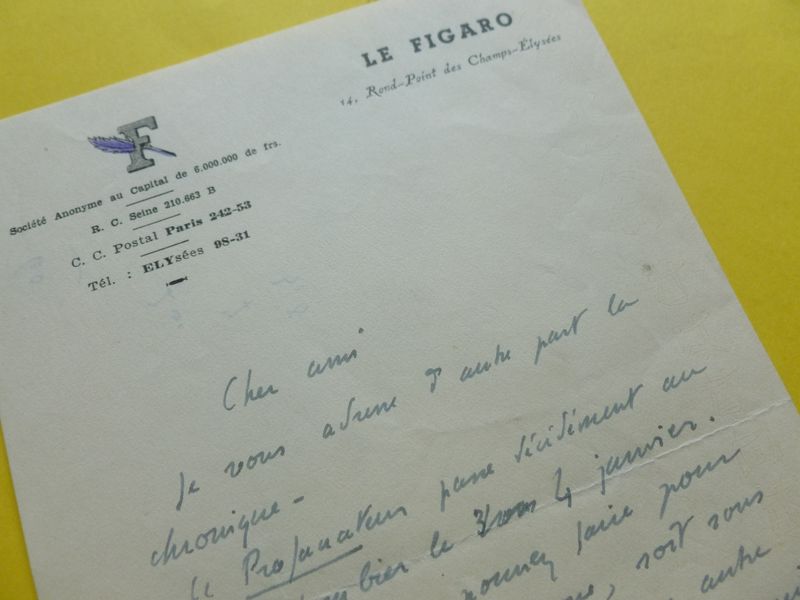 LE FIGARO
14, Rond-Point des Champs-Élysées
F
Société Anonyme au Capital de 6.000.000 de frs.
R. C. Seine 210.663 B
C. C. Postal Paris 242-53
Tél. : ELYsées 98-31
Cher ami
Je vous adresse d'autre part la
chronique -
Le Profanateur passe décidément au
bier le 4 janvier.
pourrez faire pour
soit sous
autre